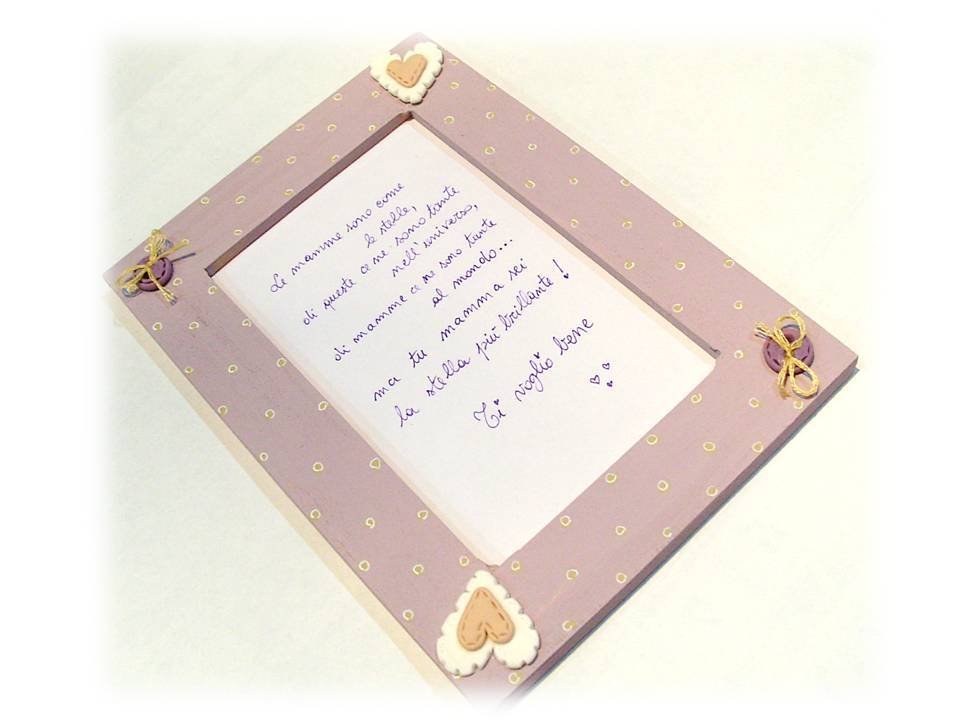 Le mamme sono come
le stelle,
di queste ce ne sono tante
nell'universo,
di mamme ce ne sono tante
al mondo...
ma tu mamma sei
la stella più brillante!
Ti voglio bene